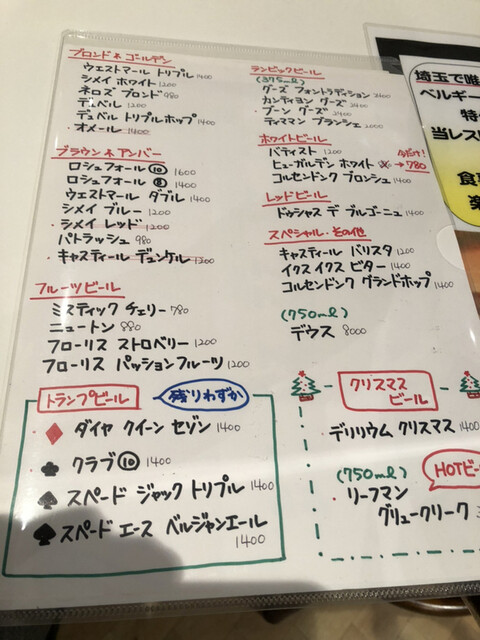 ブロンド&ゴールデン
ウェストマール トリプル 1400
シメイ ホワイト 1200
ネロズ ブロンド 980
デュベル 1200
デュベル トリプルホップ 1400
・オメール 1400
ブラウン&アンバー
ロシュフォール ⑩ 1600
ロシュフォール ⑧ 1400
ウェストマール ダブル 1400
シメイ ブルー 1200
・シメイ レッド 1200
パトラッシュ 980
・キャスティール デュンケル 1200
フルーツビール
ミスティック チェリー 780
ニュートン 880
フローリス ストロベリー 1200
フローリス パッションフルーツ 1200
トランプビール
残りわずか
・♦ ダイヤ クイーン セゾン 1400
♣ クラブ⑩ 1400
・♠ スペード ジャック トリプル 1400
・♠ スペード エース ベルジャンエール
1400
ランビックビール
(375ml)
・グーズ フォントラディション
カンティヨン グーズ 2400
・ブーン グーズ 2400
ティママン ブランシェ 2000
ホワイトビール
バティスト 1200
今だけ!
ヒューガルデン ホワイト → 780
コルセンドンク ブロンシュ 1400
レッドビール
ドゥシャス デ ブルゴーニュ 1400
スペシャル・その他
キャスティール バリスタ 1200
イクス イクス ビター 1400
コルセンドンク グランドホップ 1400
(750ml)
デウス 8000
クリスマス
ビール
・デリリウム クリスマス 1400
(750ml)
HOTビー
・リーフマン
グリュークリーク
埼玉で唯
ベルギー
特
当レス
食
楽